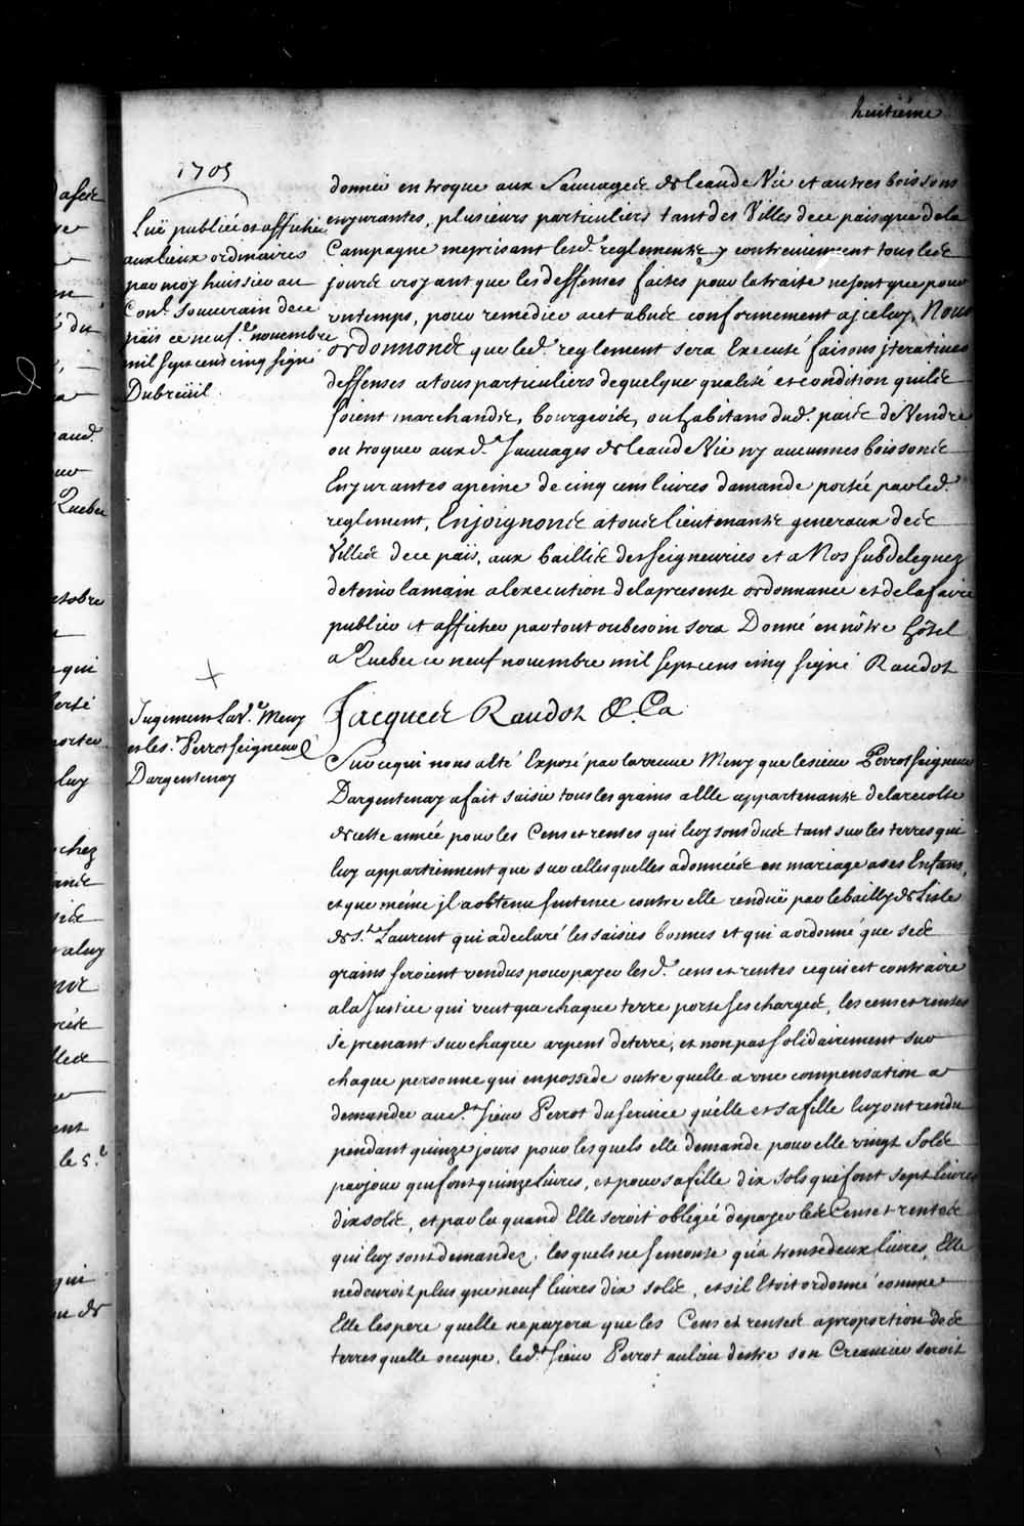 huitiéme
1705
Luë publiée et affichée
aux lieux ordinaires
par moy huissier au
Con.l souverain de ce
païs ce neuf.e novembre
mil sept cens cinq signé
Dubreüil.
donnée en troque aux Sauvages de l'eau de Vie et autres boissons
enyurantes, plusieurs particuliers tant des Villes de ce païs que de la
Campagne meprisant lesd. reglements y contreviennent tous les
jours croyant que les deffenses faites pour la traite ne sont que pour
un temps, pour remedier a cet abus conformement a jceluy, Nous
ordonnons que led. reglement sera Executé faisons jteratives
deffenses a tous particuliers de quelque qualité et condition quils
soient marchands, bourgeois, ou habitans dud. païs de Vendre
ou troquer aux d. Sauvages de l'eau de Vie ny aucunnes boissons
Enyurantes a peine de cinq cens livres damande portée par led.
reglement, Enjoignons a tous lieutenants generaux des
Villes de ce païs, aux baillis des seigneuries et a Nos subdeleguez
de tenir la main a lexecution de la presente ordonnance et de la faire
publier et afficher par tout ou besoin sera Donné en nôtre hôtel
a Quebec ce neuf novembre mil sept cens cinq signé Raudot
Jugement La V.e Meny
et le s.r Perrot seigneur
Dargentenay
Jacques Raudot &.Ca
Sur ce qui nous a été Exposé par la veuve Meny que le sieur Perrot seigneur
Dargentenay a fait saisir tous les grains a Elle appartenants de la recolte
de cette année pour les Cens et rentes qui luy sont dus tant sur les terres qui
luy appartiennent que sur celles quelles a données en mariage a ses Enfans,
et que même jl a obtenu sentence contre elle rendüe par le bailly de Lisle
de S.t Laurent qui a declaré les saisies bonnes et qui a ordonné que ses
grains seroient vendus pour payer les d. cens et rentes ce qui est contraire
a la Justice qui veut que chaque terre porte ses charges, les cens et rentes
se prenant sur chaque arpent de terre, et non pas solidairement sur
chaque personne qui en possede outre quelle a une compensation a
demander aud.t sieur Perrot du service qu'elle et sa fille luy ont rendu
pendant quinze jours pour lesquels elle demande pour elle vingt Sols
par jour qui font quinze livres, et pour sa fille dix sols qui font sept livres
dix sols, et par la quand Elle seroit obligée de payer les Cens et rentes
qui luy sont demandez, lesquels ne se montent qu'a trente deux livres, Elle
ne devroit plus que neuf livres dix sols, et sil Etoit ordonné comme
Elle lespere quelle ne payera que les Cens et rentes a proportion des
terres quelle occupe, led.t sieur Perrot au lieu d'estre son Creancier seroit